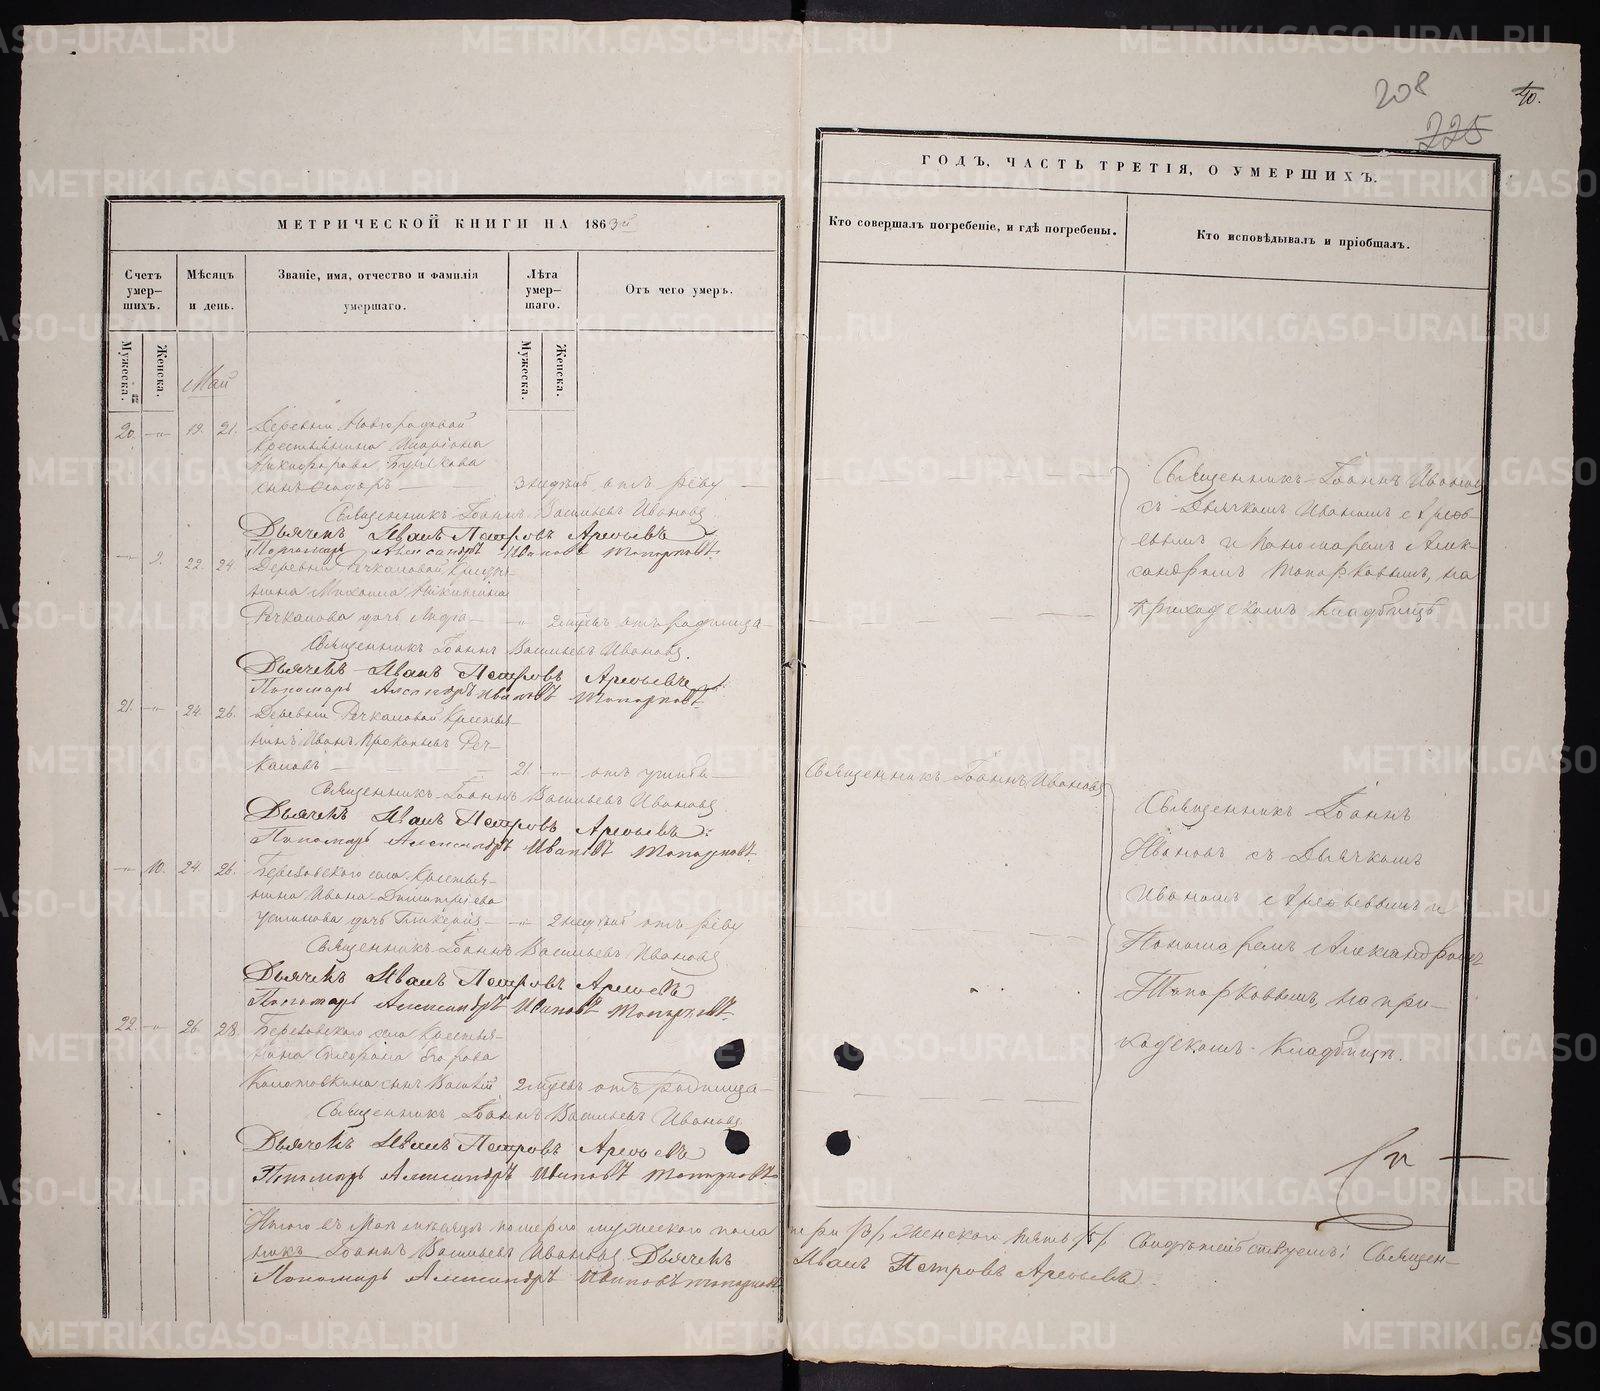 208
225
40.
МЕТРИЧЕСКОЙ КНИГИ НА 1863й
ГОДЪ, ЧАСТЬ ТРЕТІЯ, О УМЕРШИХЪ.
Счетъ умер-шихъ.
Мѣсяцъ и день.
Званіе, имя, отчество и фамилія умершаго.
Лѣта умер-шаго.
Отъ чего умеръ.
Кто совершалъ погребеніе, и гдѣ погребены.
Кто исповѣдывалъ и пріобщалъ.
Мужеска.
Женска.
Мужеска.
Женска.
Май
20. 19. 21. Деревни
крестьянина Иларіона
Никифорова
сынъ Ѳеодоръ 3 недѣль отъ рёву
Священникъ Іоаннъ Васильевъ Ивановъ
Дьячекъ Иванъ Петровъ Арефьевъ
Пономарь Александръ Ивановъ Топорковъ
9. 22. 24. Деревни Речкаловой Кресть-
янина Михаила Никитина
Речкалова дочь Лидія 2 мѣсяц. отъ родимца
Священникъ Іоаннъ Васильевъ Ивановъ.
Дьячекъ Иванъ Петровъ Арефьевъ
Пономарь Александръ Ивановъ Топорковъ
21. 24. 26. Деревни Речкаловой Кресть-
янинъ Иванъ Прокопьевъ Реч-
каловъ 21 отъ
Священникъ Іоаннъ Васильевъ Ивановъ
Дьячекъ Иванъ Петровъ Арефьевъ
Пономарь Александръ Ивановъ Топорковъ
10. 24. 26. Березовскаго села Кресть-
янина Ивана Димитріева
Устинова дочь Гликерія 2 недѣль отъ рёву
Священникъ Іоаннъ Васильевъ Ивановъ
Дьячекъ Иванъ Петровъ Арефьевъ
Пономарь Александръ Ивановъ Топорковъ
22. 26. 28. Березовскаго села Кресть-
янина
сынъ Василій 2 мѣсяц. отъ родимца
Священникъ Іоаннъ Васильевъ Ивановъ
Дьячекъ Иванъ Петровъ Арефьевъ
Пономарь Александръ Ивановъ Топорковъ
Священникъ Іоаннъ Ивановъ
съ Дьячкомъ Иваномъ Ареѳь-
евымъ и Пономаремъ Алек-
сандромъ Топорковымъ, на
приходскомъ кладбищѣ
Священникъ Іоаннъ Ивановъ
Священникъ Іоаннъ
Ивановъ съ Дьячкомъ
Иваномъ Ареѳьевымъ и
Пономаремъ Александромъ
Топорковымъ, на при-
ходскомъ кладбищѣ.
Итого въ Маѣ мѣсяцѣ померло мужескаго пола три /3/ женскаго пять /5/. Свидѣтельствуемъ: Священ-
никъ Іоаннъ Васильевъ Ивановъ Дьячекъ Иванъ Петровъ Арефьевъ.
Пономарь Александръ Ивановъ Топорковъ
METRIKI.GASO-URAL.RU